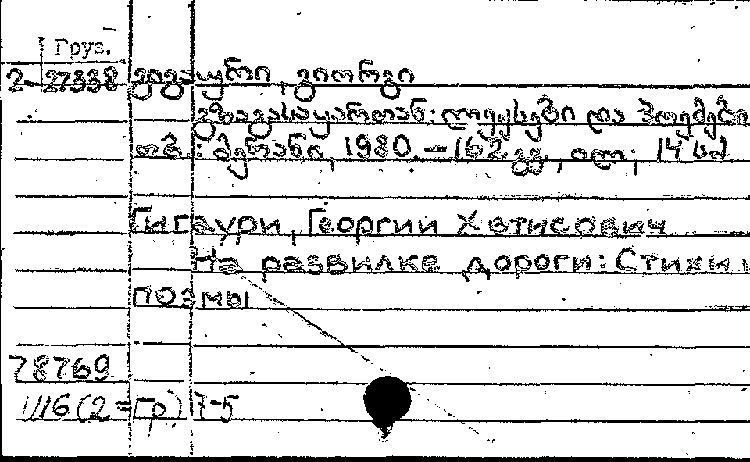 Груз.
2-27338 გიგაური, გიორგი
გზაგასაყართან: ლექსები და პოემები
თბ.: მერანი, 1980. – 162 გვ., ილ; 14 სმ
Гигаури, Георгий Хвтисович
На развилке дороги: Стихи и
поэмы
78769
1/116 (2=Гр) 7-5